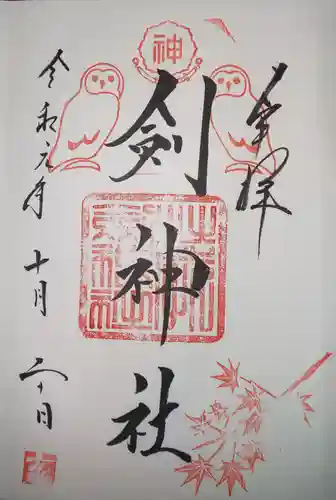 奉拝
神
劍神社
令和元年十月二十日